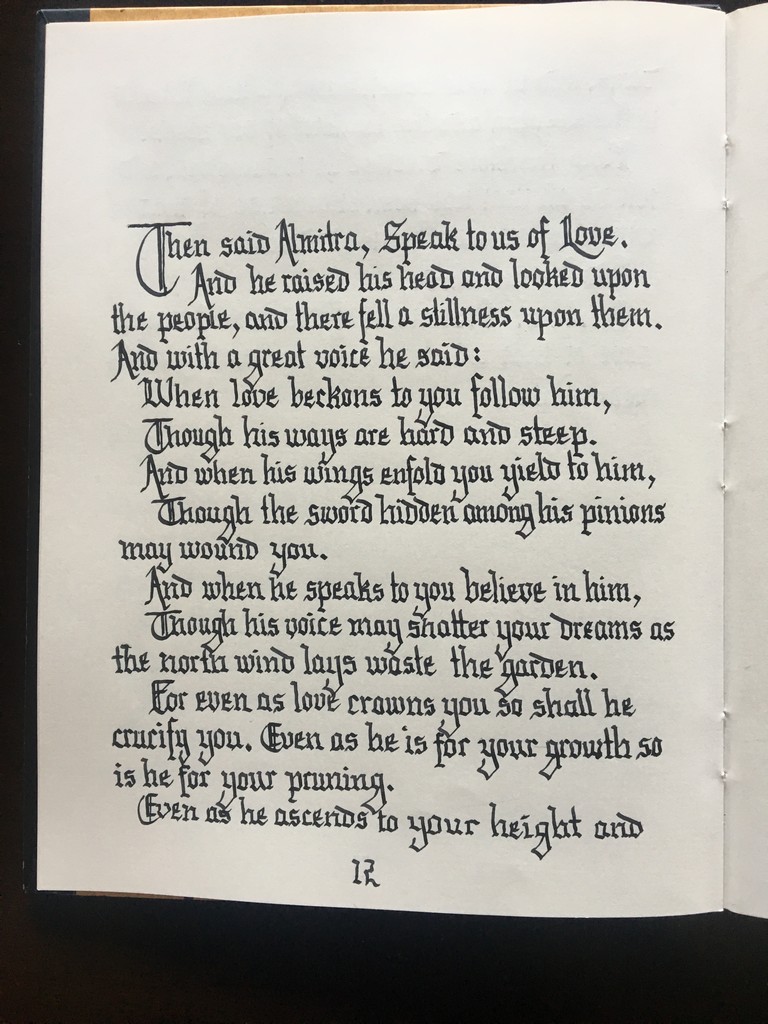 Then said Almitra, Speak to us of Love.
And he raised his head and looked upon
the people, and there fell a stillness upon them.
And with a great voice he said:
When love beckons to you follow him,
Though his ways are hard and steep.
And when his wings enfold you yield to him,
Though the sword hidden among his pinions
may wound you.
And when he speaks to you believe in him,
Though his voice may shatter your dreams as
the north wind lays waste the garden.
For even as love crowns you so shall he
crucify you. Even as he is for your growth so
is he for your pruning.
Even as he ascends to your height and
12